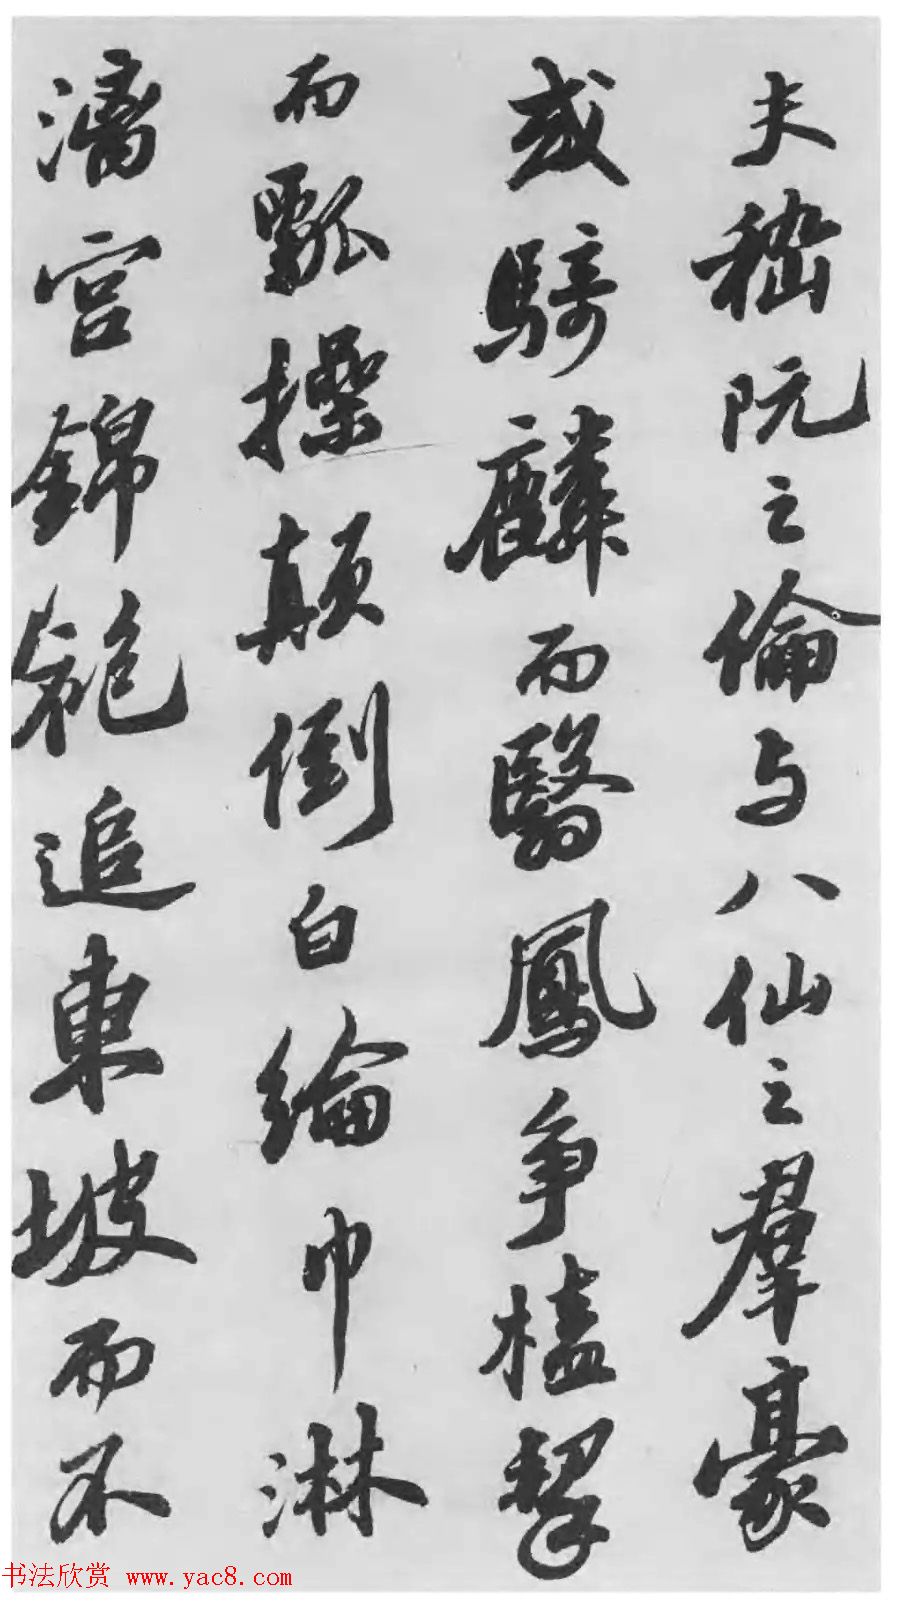 夫嵇阮之倫与八仙之羣豪
或騎麟而翳鳳争榼挈
而瓢操顛倒白綸巾淋
漓宫錦袍追東坡而不
书法欣赏 www.yac8.com